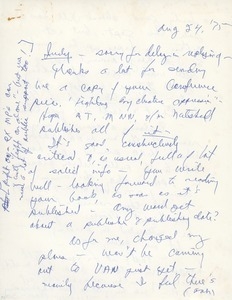 Aug 24, '75
Judy — sorry for delay in replying —
Thanks a lot for sending
me a copy of your Conference
piece: "Fighting Psychiatric Oppression"
Hope AT, MNN, or Nutshell
publishes all of it —
It's good, constructively
critical &, as usual, full of lots
of solid info — You write
well — looking forward to reading
your book, as soon as it's
published — Any word yet
about a publisher & publishing date?
As for me, changed my
plans — won't be coming
out to VAN just yet —
mainly because I feel there's